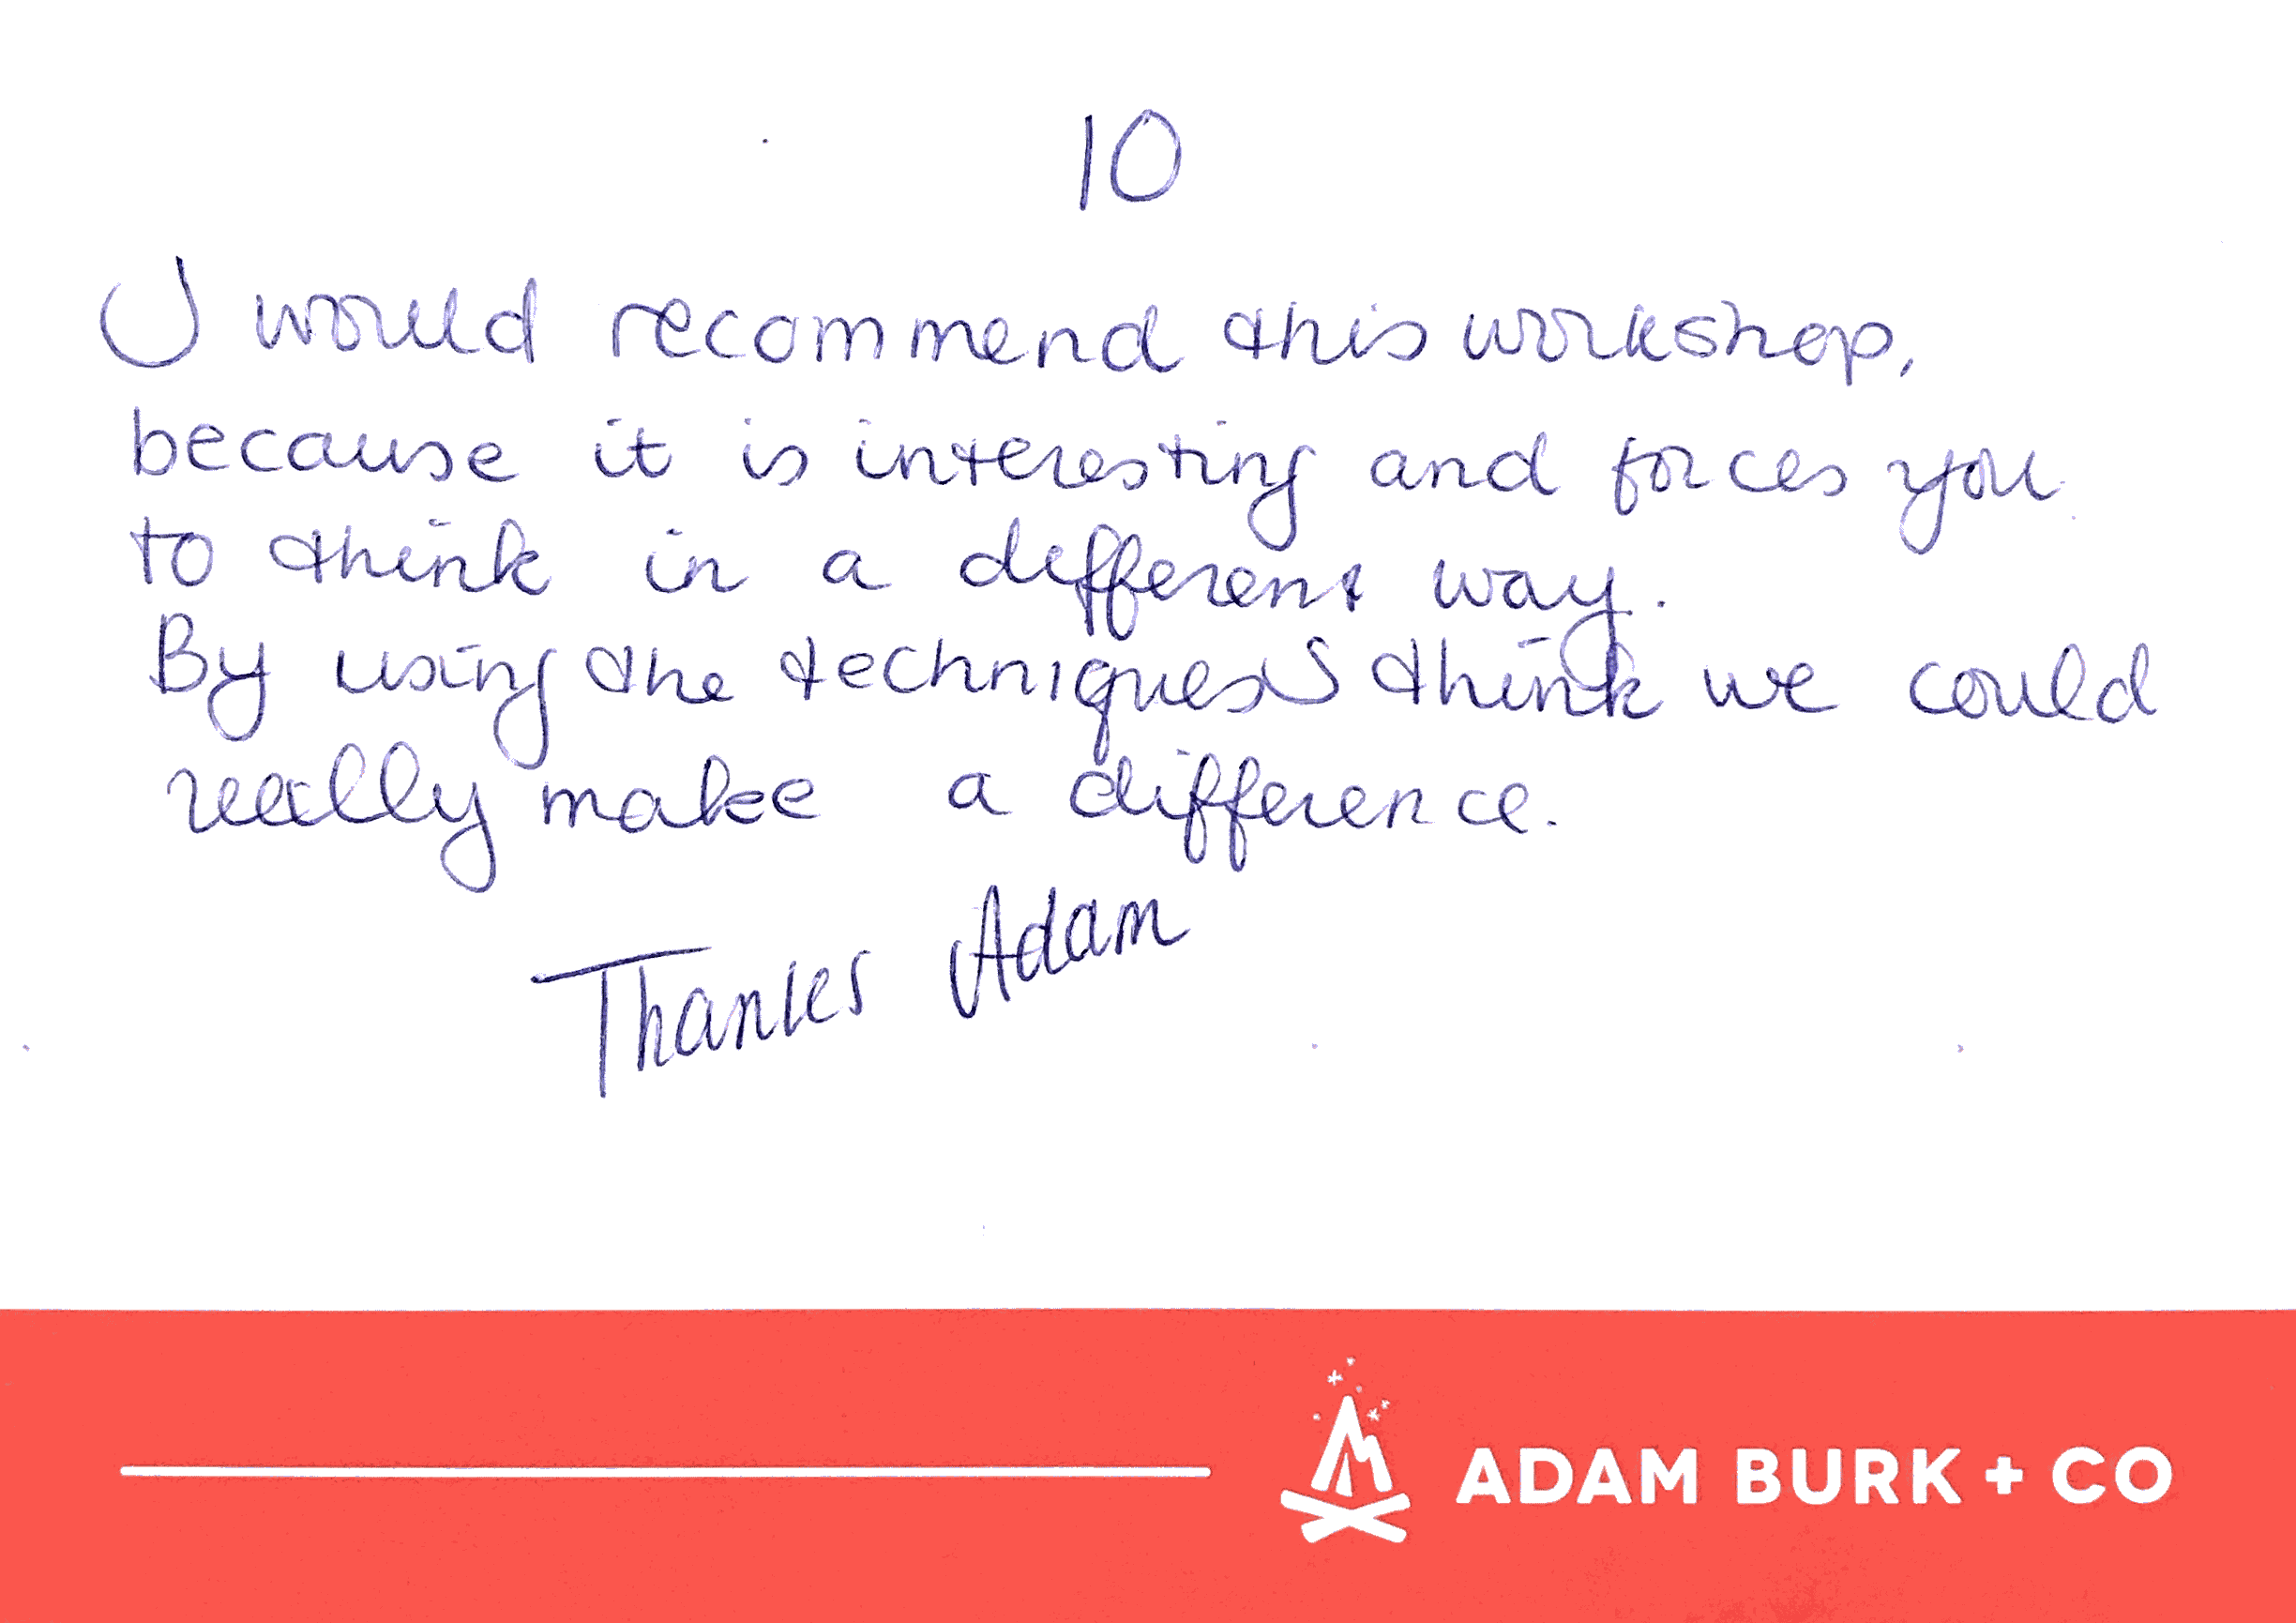 10
I would recommend this workshop,
because it is interesting and forces you
to think in a different way.
By using the techniques I think we could
really make a difference.
Thanks Adam
ADAM BURK + CO